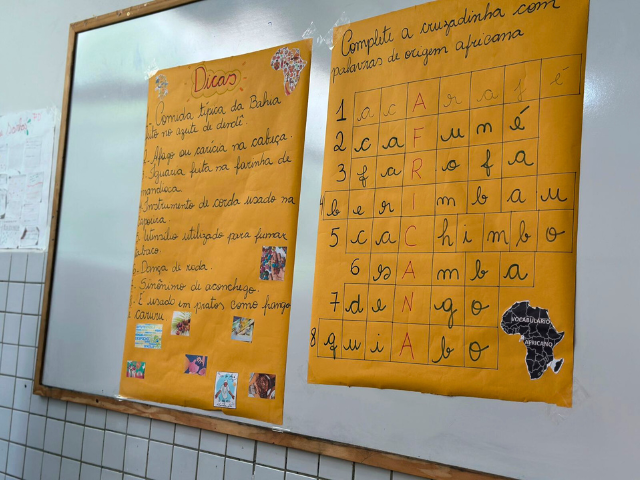 Dicas
Comida típica da Bahia
frito no azeite de dendê.
Afago ou carícia na cabeça.
Iguaria feita na farinha de
mandioca.
Instrumento de corda usado na
capoeira.
Utensílio utilizado para fumar
tabaco.
Dança de roda.
Sinônimo de aconchego.
É usado em pratos como frango
caruru
Complete a cruzadinha com
palavras de origem africana
1 acArafé
2 caFuné
3 faRofa
4 berImbau
5 caChimbo
6 sAmba
7 deNgo
8 quiAbo
VOCABULÁRIO
AFRICANO